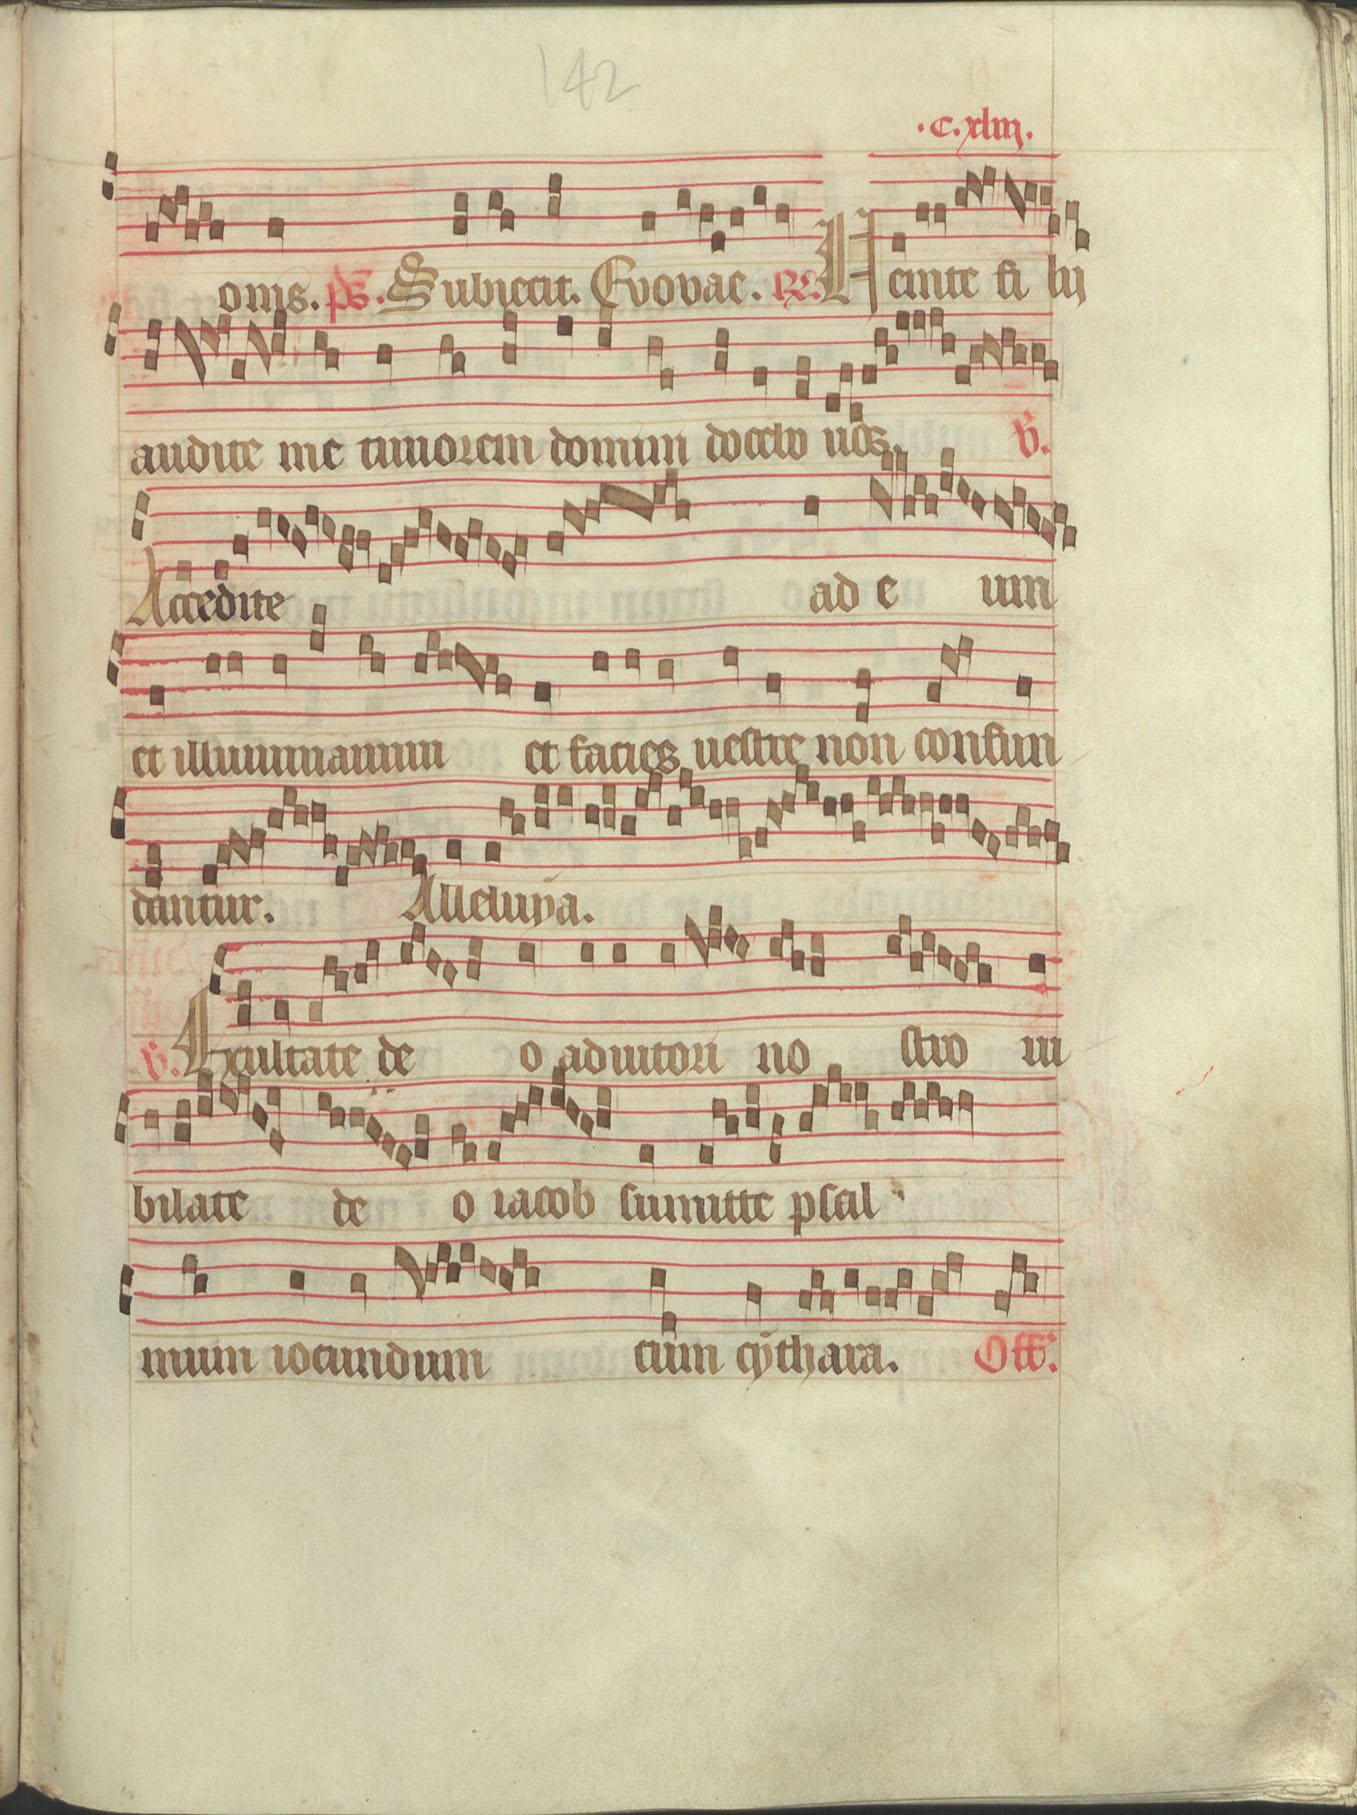 142
.c.xliij.
onis. ps. Subiecit. Evovae. RE. Uenite fi lij
audite me timorem domini docebo uos. V.
Accedite ad e um
et illuminamini et facies uestre non confun
dantur. Alleluya.
V. Exultate de o adiutori no stro iu
bilate de o iacob sumitte psal
mum iocundum cum cythara. Off.